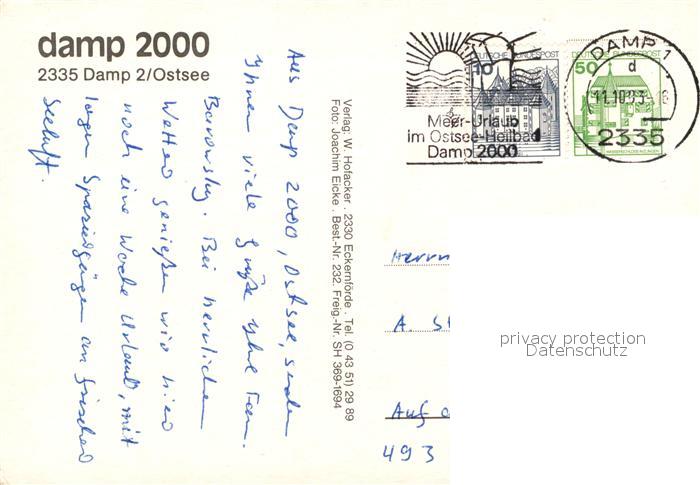 damp 2000
2335 Damp 2/Ostsee
Aus Damp 2000, Ostsee, senden
Ihnen viele Grüße Ihre Fam.
Borowsky. Bei herrlichem
Wetter genießen wir hier
noch eine Woche Urlaub, mit
langen Spaziergängen an frischer
Seeluft.
Verlag: W. Hofacker . 2330 Eckernförde . Tel. (0 43 51) 29 89
Foto: Joachim Eicke . Best.-Nr. 232. Freig.-Nr. SH 369-1694
DEUTSCHE BUNDESPOST
10
50
Meer-Urlaub
im Ostsee-Heilbad
Damp 2000
DAMP 1
d
11.10.83
2335
Herrn
A. St
Auf d
493
privacy protection
Datenschutz